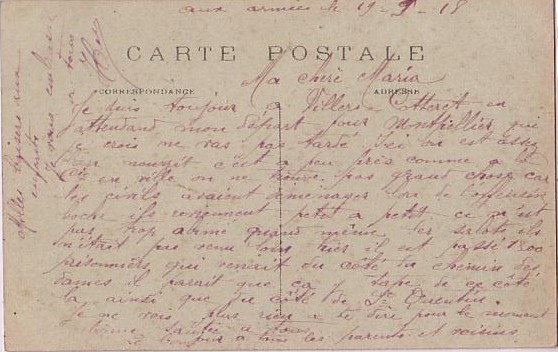 aux armées le 19-9-18
CARTE POSTALE
CORRESPONDANCE
ADRESSE
Ma chere Maria
Je suis toujour a Villers Cotteret en
attendand mon départ pour Montpellier qui
je crois me vas pas tardé Ici on est assez
bien nourrit c'est a peu près comme a
en ville on ne trouve pas grand chose car
les civils avaient éménagés lors de l'offensive
boche ils reviennent petit a petit ce n'est
pas trop abimé quand même les salots ils
n'était pas venu loin hier il est passé 1300
prisonniers qui venait du coté du chemin des
dames il parrait que ça y tape de ce coté
la ainsi que du coté de St Quentin
Je ne vois plus rien a te dire pour le moment
bonne santée a tous
bonjour a tous les parents et voisins
Milles baisers aux
enfants
Je vous embrasse
a tous